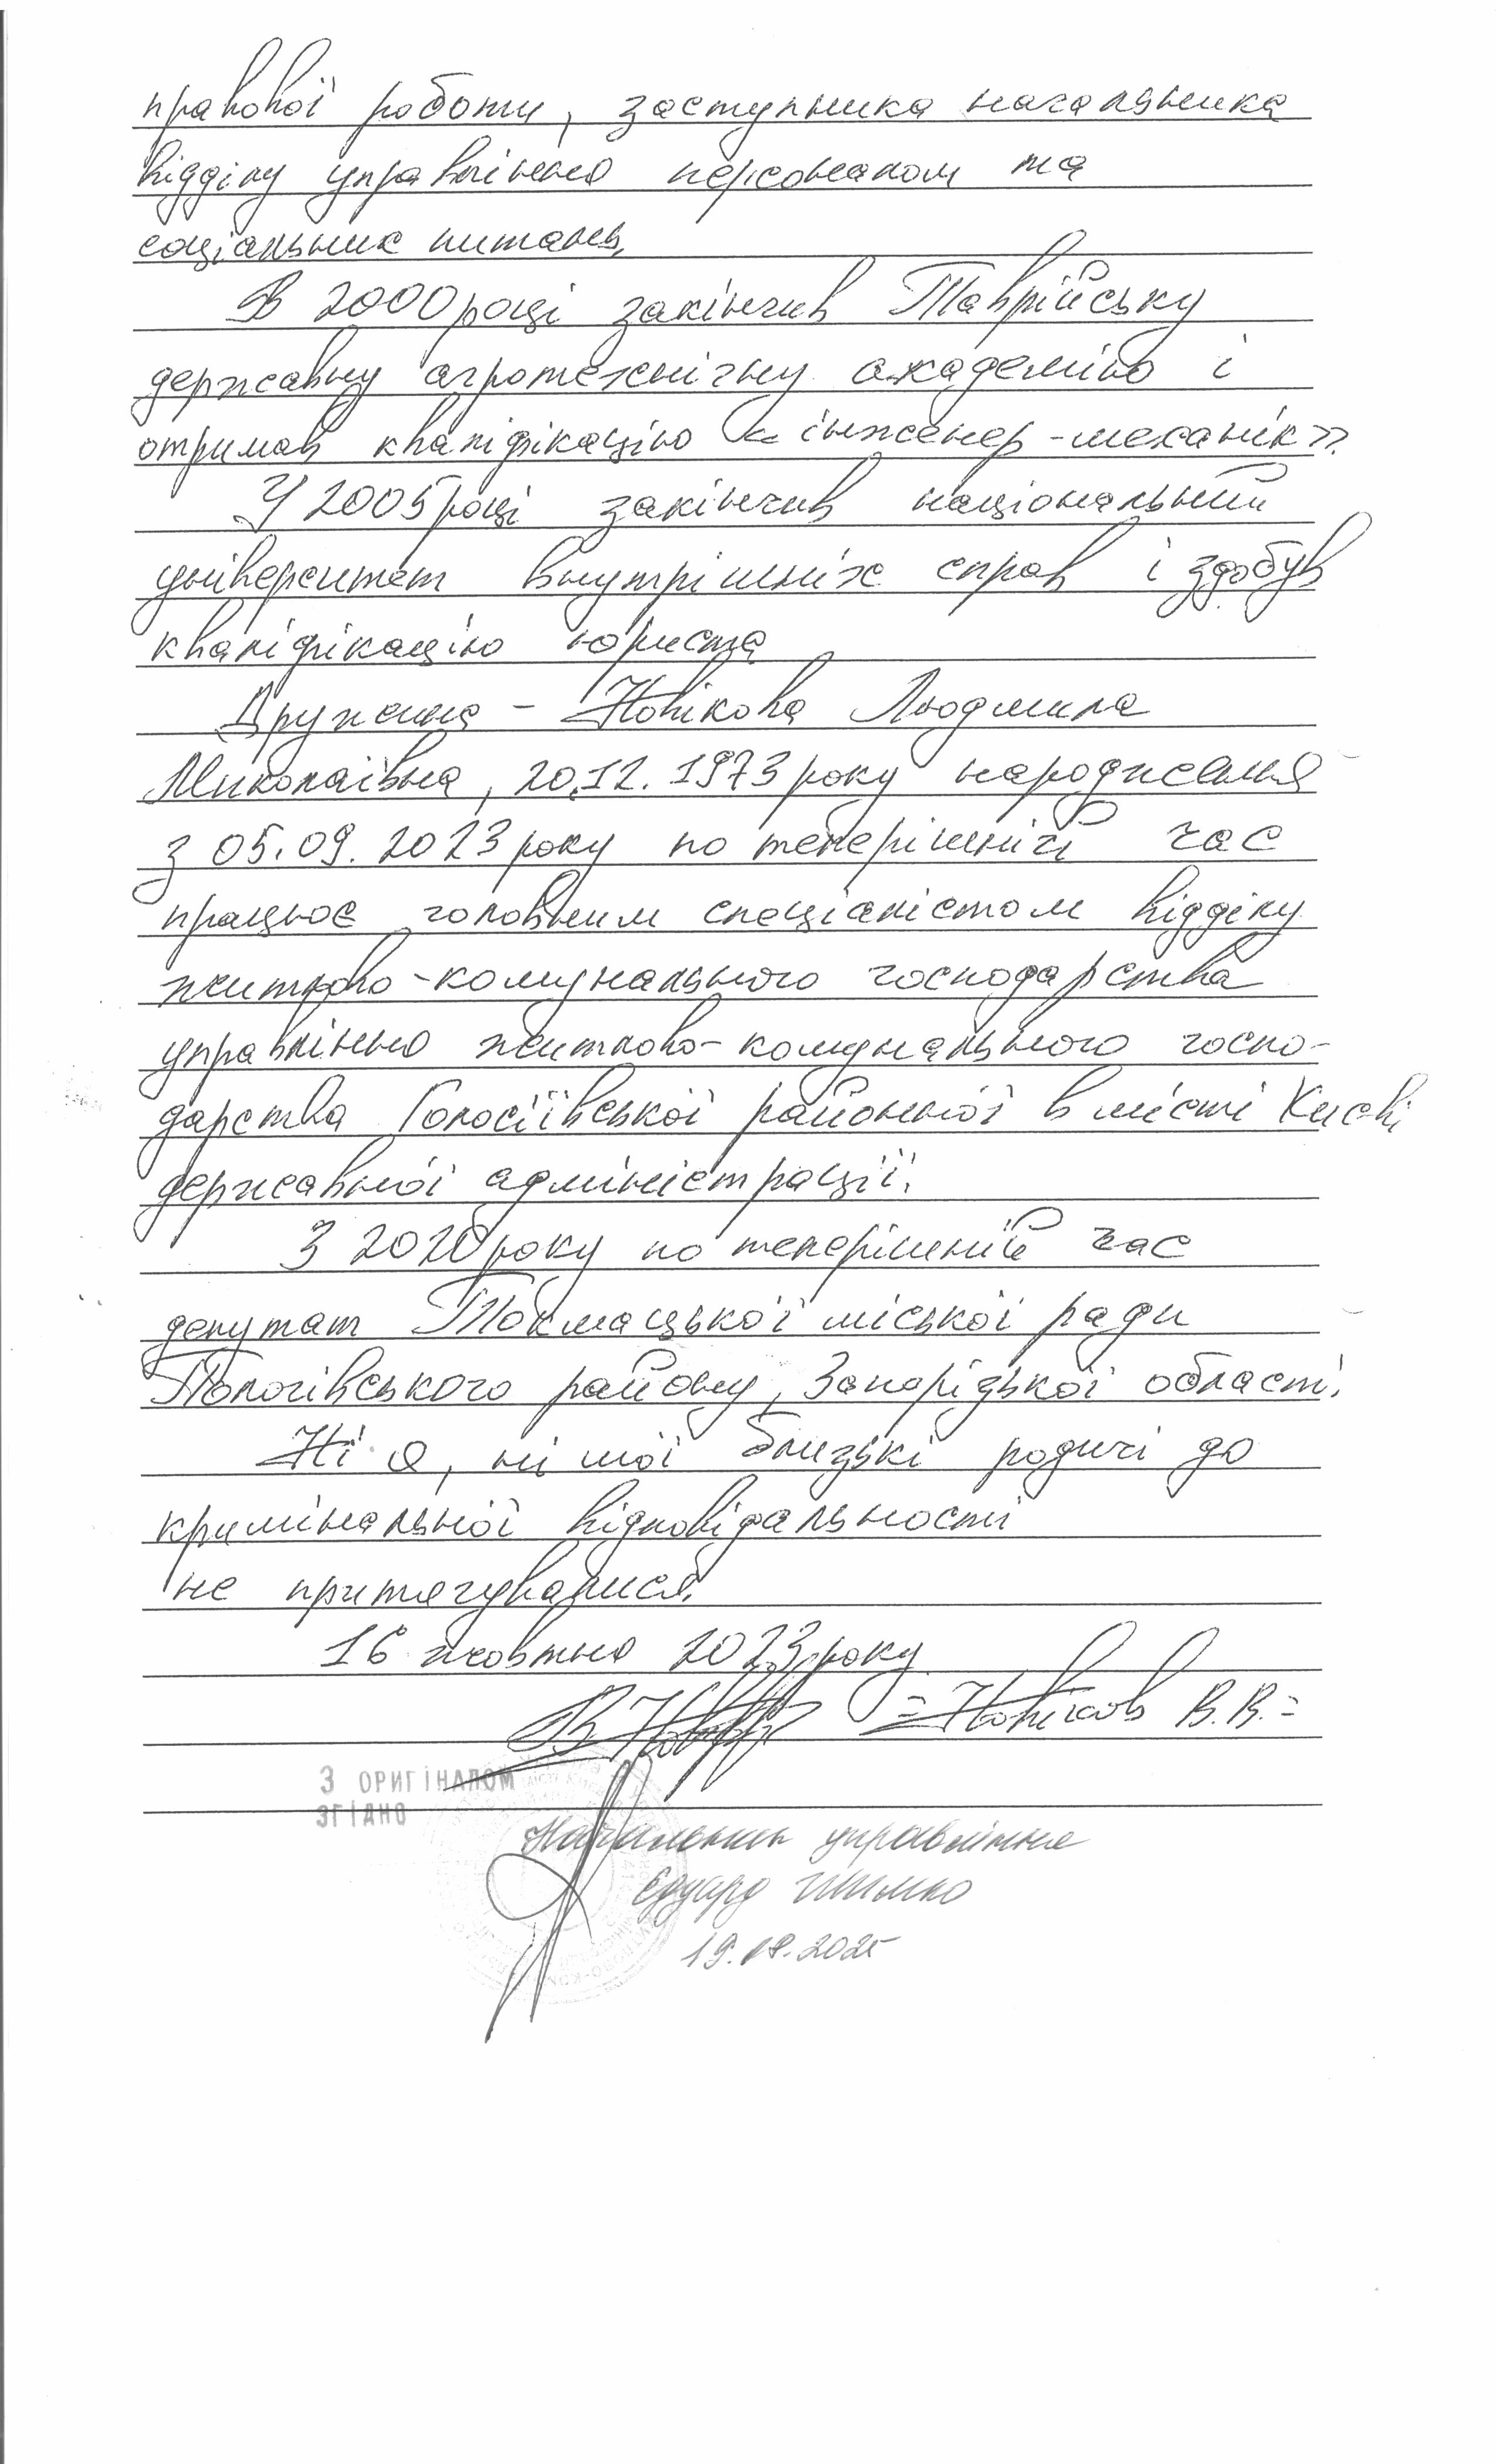 правової роботи, заступника начальника
відділу управління персоналом та
соціальних питань.
В 2000 році закінчив Таврійську
державну агротехнічну академію і
отримав кваліфікацію «інженер-механік».
У 2005 році закінчив національний
університет внутрішніх справ і здобув
кваліфікацію юриста
Дружина - Новікова Людмила
Миколаївна, 20.12.1973 року народження
з 05.09.2023 року по теперішній час
працює головним спеціалістом відділу
житлово-комунального господарства
управління житлово-комунального госпо-
дарства Голосіївської районної в місті Києві
державної адміністрації.
З 2020 року по теперішній час
депутат Токмацької міської ради
Пологівського району, Запорізької області.
Ні я, ні мої близькі родичі до
кримінальної відповідальності
не притягувалися.
16 жовтня 2023 року
=Новіков В.В.=
З ОРИГІНАЛОМ
ЗГІДНО
Начальник управління
Едуард